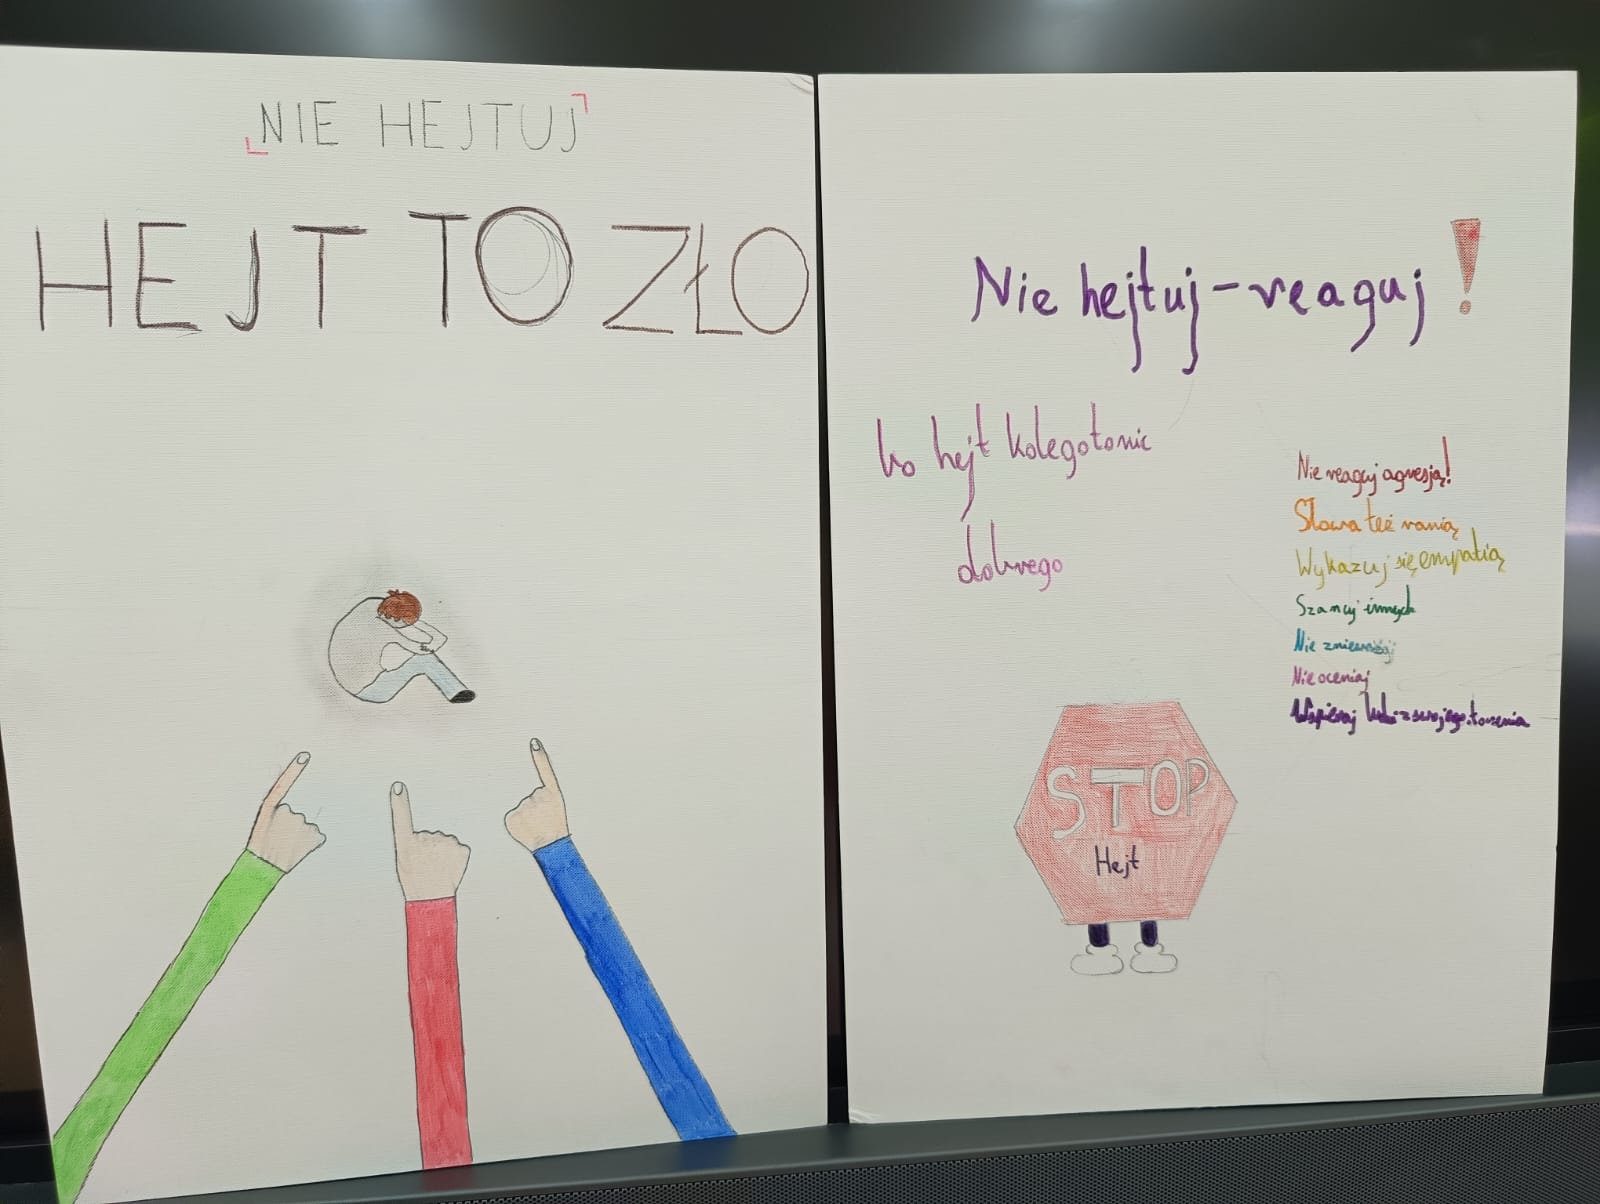 NIE HEJTUJ
HEJT TO ZŁO
Nie hejtuj-reaguj!
bo hejt kolego to nic
dobrego
Nie reaguj agresją!
Słowa też ranią
Wykazuj się empatią
Szanuj innych
Nie znieważaj
Nie oceniaj
Wspieraj ludzi z swojego otoczenia
STOP
Hejt